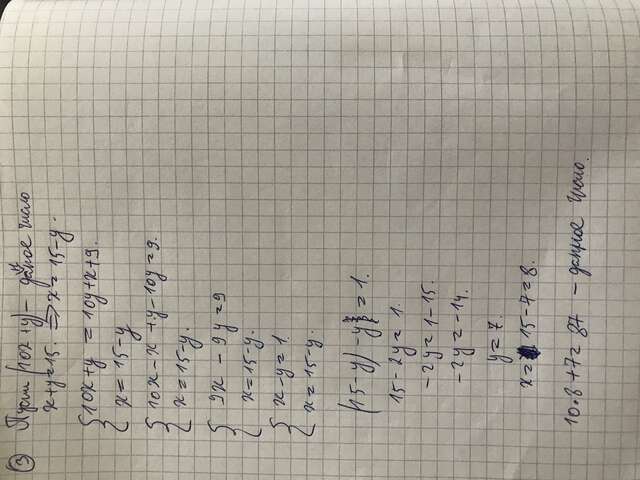 ③ Пусть (10x+y) – данное число
x+y=15. ⇒ x=15-y.
{10x+y = 10y+x+9.
{x=15-y
{10x-x+y-10y=9.
{x=15-y.
{9x-9y=9
{x=15-y.
{x-y=1.
{x=15-y.
(15-y)-y=1.
15-2y=1.
-2y=1-15.
-2y=-14.
y=7.
x=15-7=8.
10·8+7=87 – данное число.